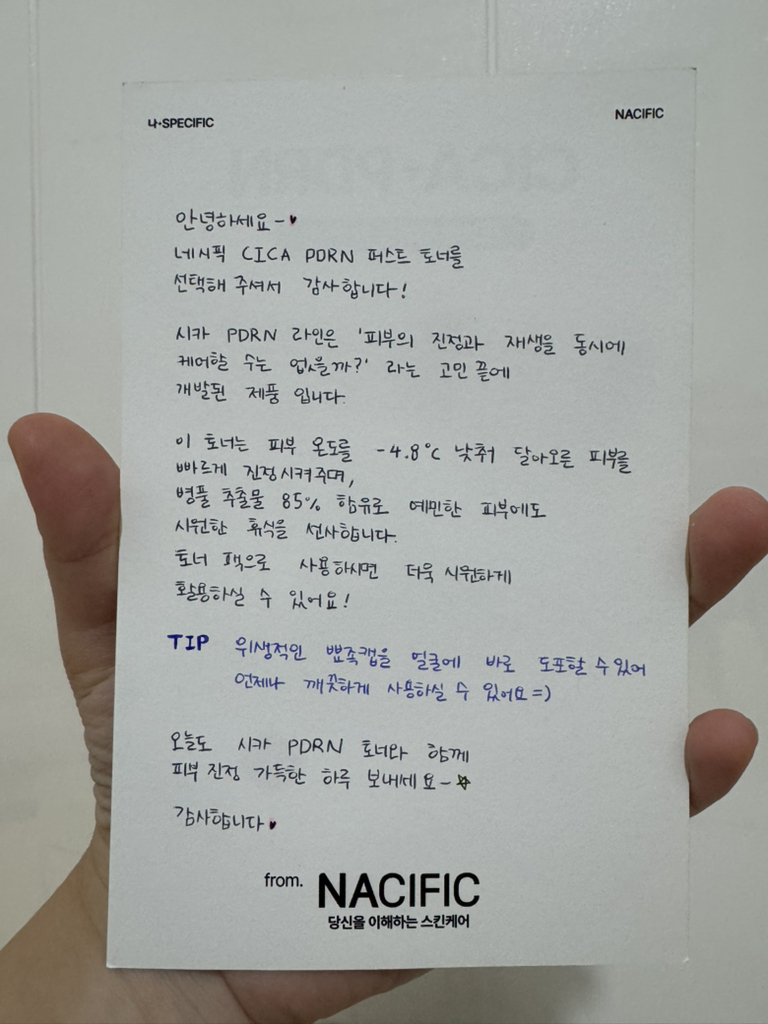 나·SPECIFIC
NACIFIC
안녕하세요-♥
네시픽 CICA PDRN 퍼스트 토너를
선택해 주셔서 감사합니다!
시카 PDRN 라인은 '피부의 진정과 재생을 동시에
케어할 수는 없을까?' 라는 고민 끝에
개발된 제품 입니다.
이 토너는 피부 온도를 -4.8°C 낮춰 달아오른 피부를
빠르게 진정시켜주며,
병풀 추출물 85% 함유로 예민한 피부에도
시원한 휴식을 선사합니다.
토너 팩으로 사용하시면 더욱 시원하게
활용하실 수 있어요!
TIP 위생적인 뾰족캡을 얼굴에 바로 도포할 수 있어
언제나 깨끗하게 사용하실 수 있어요=)
오늘도 시카 PDRN 토너와 함께
피부 진정 가득한 하루 보내세요-☆
감사합니다♥
from. NACIFIC
당신을 이해하는 스킨케어